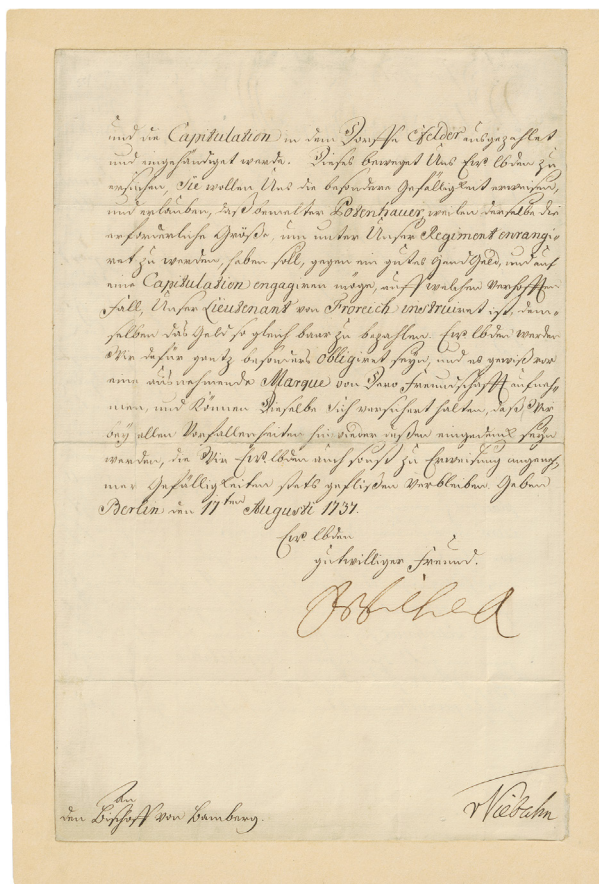 und die Capitulation in dem Dorffe Efelder ausgezahlet
und eingehändiget werde. Dieses beweget Uns Ew. lbden zu
ersuchen, Sie wollen Uns die besondere Gefälligkeit erweisen,
und erlauben, daß bemelter Rosenhauer, weilen derselbe die
erforderliche Größe, um unter Unser Regiment enrangi-
ret zu werden, haben soll, gegen ein gutes Hand Geld, und auf
eine Capitulation engagiren möge, auff welchen verhofften
Fall, Unser Lieutenant von Froreich instruiret ist, dem-
selben das Geld so gleich baar zu bezahlen. Ew. lbden werden
Wir dafür gantz besonders obligiret seyn, und es gewiß vor
eine ausnehmende Marque von Dero Freundschafft aufneh-
men, und können Dieselbe Sich versichert halten, daß Wir
bey allen Vorfallenheiten hinwieder deßen eingedenck seyn
werden, die Wir Ew. lbden auch sonst zu Erweisung angeneh-
mer Gefälligkeiten stets geflißen verbleiben. Geben
Berlin den 17ten Augusti 1737.
Ew. lbden
gutwilliger Freund.
An
den Bischoff von Bamberg.
vViebahn